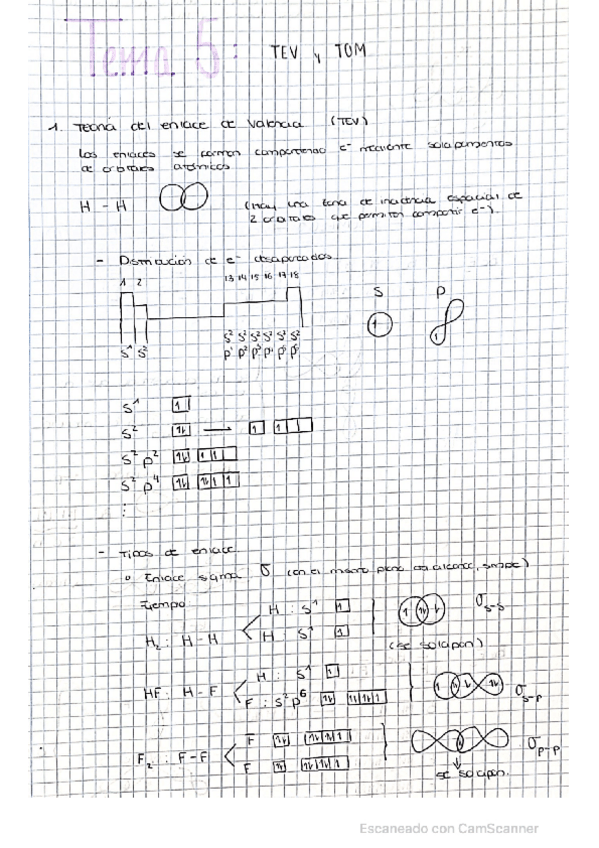 Tema 5: TEV y TOM
1. Teoría del enlace de Valencia (TEV)
Los enlaces se forman compartiendo e⁻ mediante solapamientos
de orbitales atómicos
H - H (Hay una zona de espacial de
2 orbitales que permiten compartir e⁻).
- Distribución de e⁻ desapareados.
1 2 13 14 15 16 17 18
S P
S² S² S² S² S² S²
S¹ S² P¹ P² P³ P⁴ P⁵ P⁶
S¹ 1
S² 1L → 1 1
S² P² 1L 1 1
S² P⁴ 1L 1L 1 1
⋮
- Tipos de enlace.
o Enlace sigma σ (en el mismo plano simple)
Ejemplo
H : S¹ 1
H₂ : H - H σ s-s
H : S¹ 1
(se solapan)
H : S¹ 1
HF : H - F σ s-p
F : S² P⁶ 1L 1L 1L 1
F 1L 1L 1L 1
F₂ : F - F σ p-p
F 1L 1L 1L 1
se solapan.
Escaneado con CamScanner